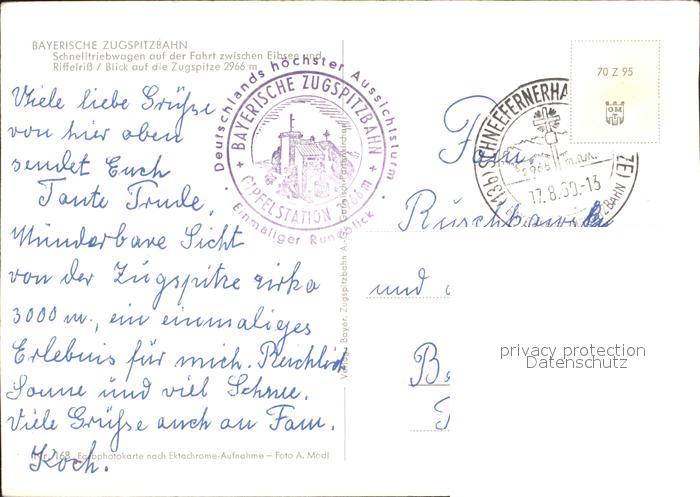 BAYERISCHE ZUGSPITZBAHN
Schnelltriebwagen auf der Fahrt zwischen Eibsee und
Riffelriß / Blick auf die Zugspitze 2966 m
Viele liebe Grüße
von hier oben
sendet Euch
Tante Trude,
Wunderbare Sicht
von der Zugspitze zirka
3000 m., ein einmaliges
Erlebnis für mich. Reichlich
Sonne und viel Schnee.
Viele Grüße auch an Fam.
Koch.
Nr. 168 Farbphotokarte nach Ektachrome-Aufnahme – Foto A. Mödl
Deutschlands höchster Aussichtsturm
BAYERISCHE ZUGSPITZBAHN
GIPFELSTATION
Einmaliger Rundblick
Verlag Bayer. Zugspitzbahn A.-G. Garmisch-Partenkirchen
(13b) SCHNEEFERNERHA
ZE)
2966 m.ü.M.
17.8.60-13
ZBAHN
70 Z 95
OM
Fam.
und
privacy protection
Datenschutz